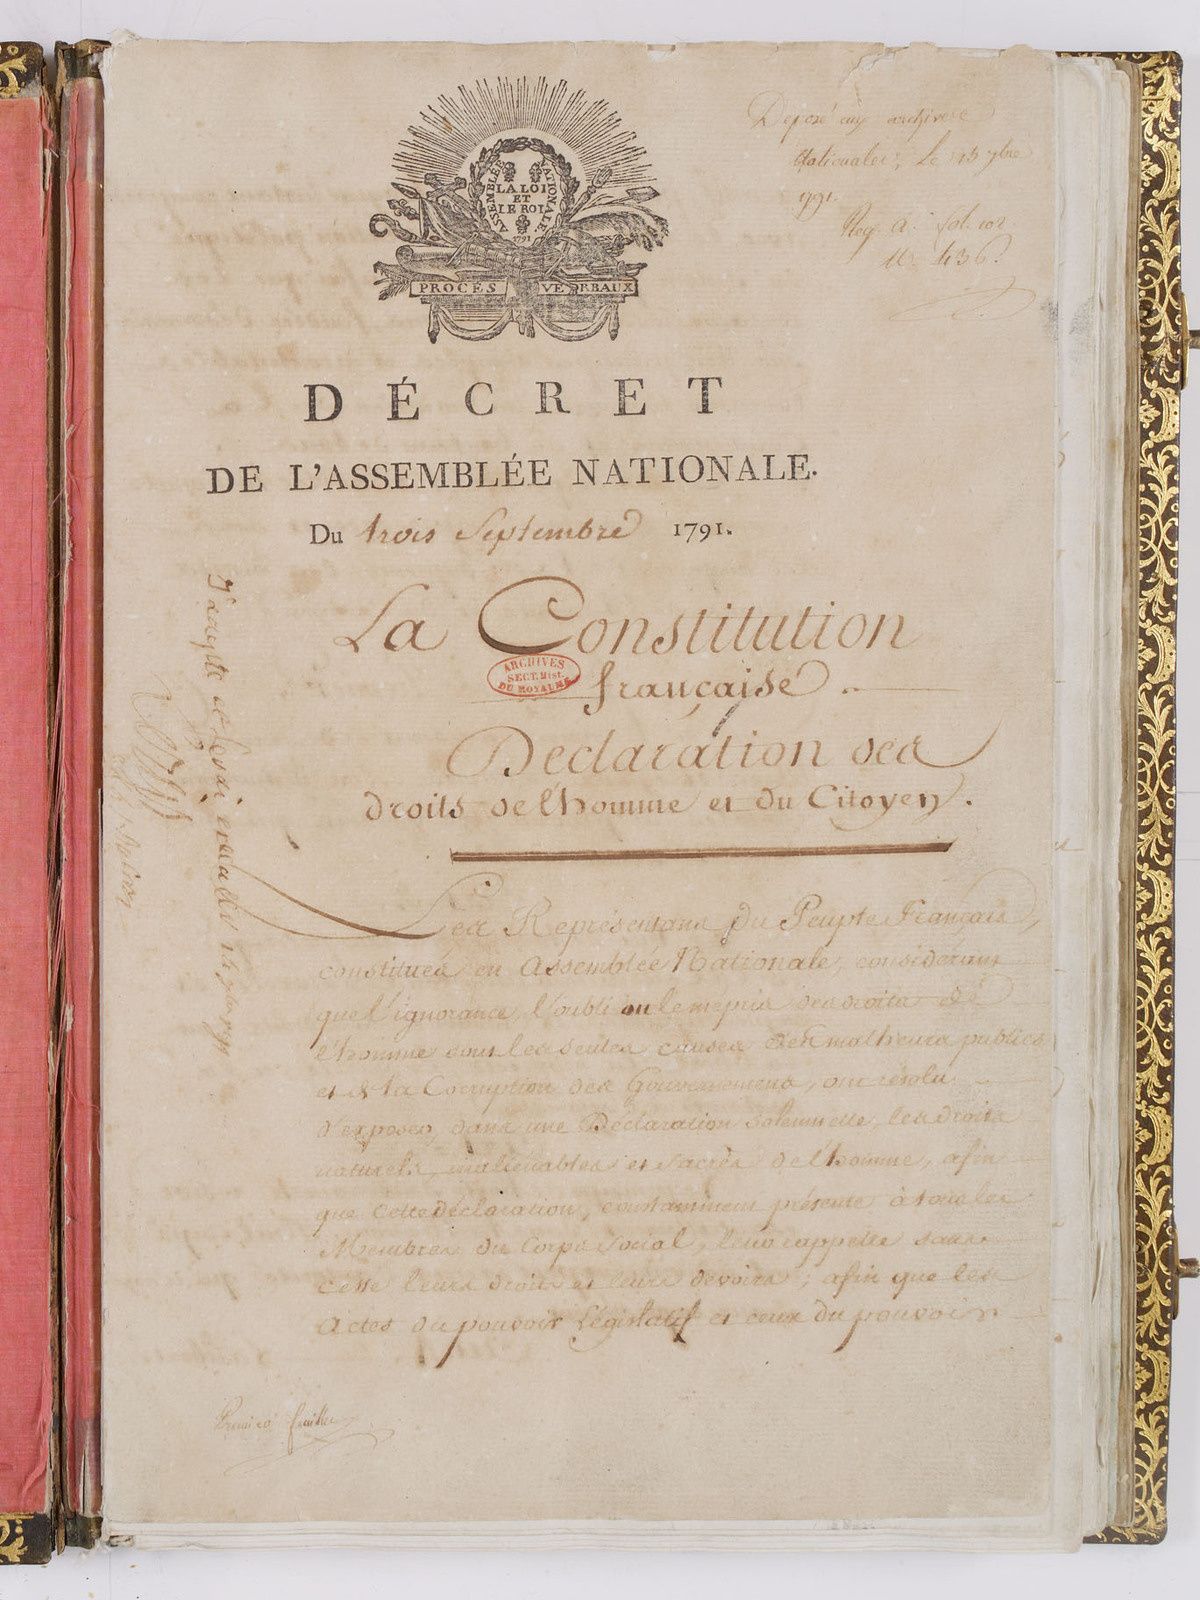 Déposé aux archives
Nationales, Le 15 7bre
1791.
Reg. A. fol. 102
N. 436.
ASSEMBLÉE NATIONALE
LA LOI
ET
LE ROI
1791
PROCÈS VERBAUX
DÉCRET
DE L'ASSEMBLÉE NATIONALE.
Du trois Septembre 1791.
La Constitution
française
ARCHIVES
SECT. Hist.
DU ROYAUME
Déclaration des
droits de l'homme et du Citoyen.
J'accepte et ferai exécuter
Les Représentans du Peuple Français,
constitués en Assemblée Nationale, considérant
que l'ignorance, l'oubli ou le mépris des droits de
l'homme sont les seules causes des malheurs publics
et de la Corruption des Gouvernemens, ont résolu
d'exposer, dans une Déclaration Solemnelle, les droits
naturels, inaliénables et sacrés de l'homme, afin
que cette déclaration, constamment présente à tous les
Membres du Corps Social, leur rappelle sans
cesse leurs droits et leurs devoirs; afin que les
Actes du pouvoir Législatif et ceux du pouvoir
Premier feuillet